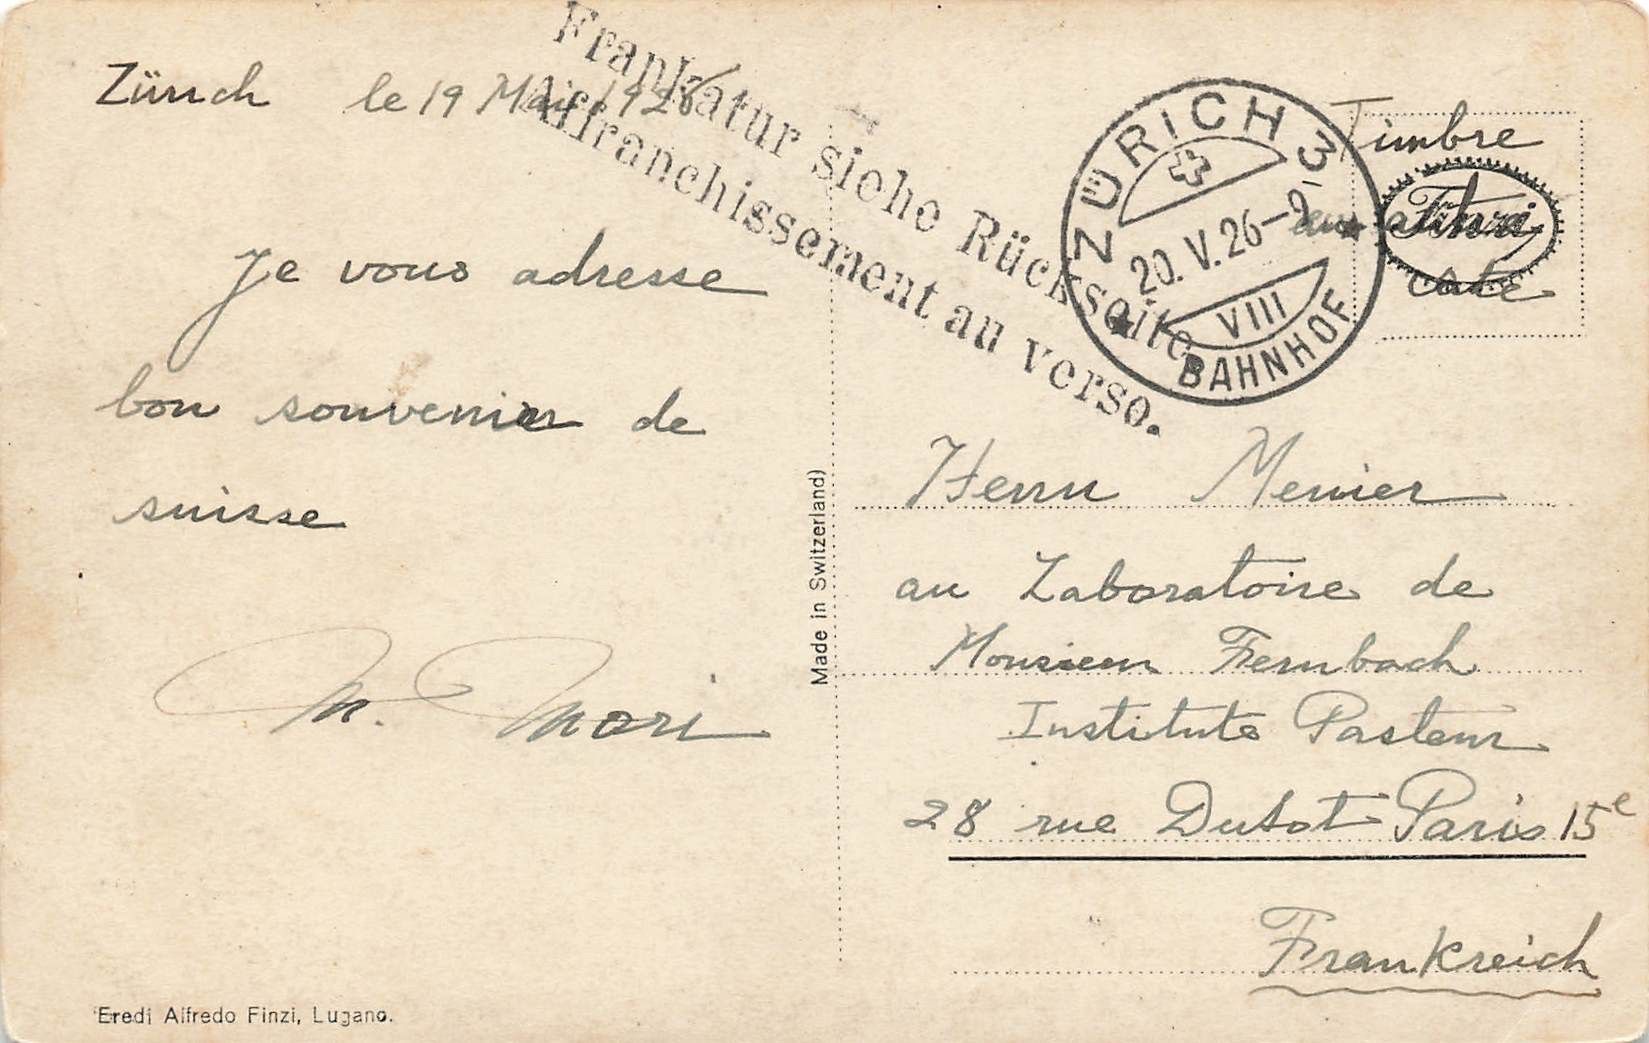 Zürich le 19 Mai 1926
Frankatur siehe Rückseite
Affranchissement au verso.
Je vous adresse
bon souvenir de
suisse
M. Mori
ZÜRICH 3
20.V.26-9
VIII
BAHNHOF
Timbre
au autre
côté
Finzi
Herrn Menier
au Laboratoire de
Monsieur Fernbach
Institute Pasteur
28 rue Dutot Paris 15e
Frankreich
Made in Switzerland)
Eredi Alfredo Finzi, Lugano.